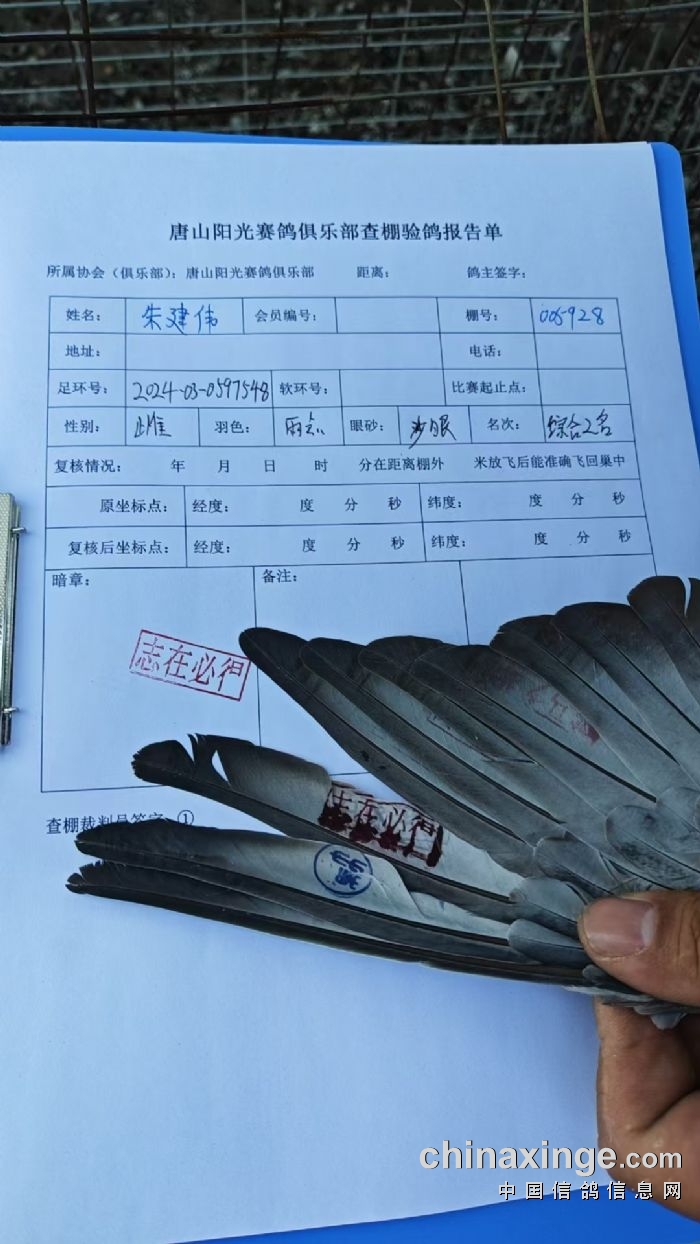 唐山阳光赛鸽俱乐部查棚验鸽报告单
所属协会（俱乐部）：唐山阳光赛鸽俱乐部 距离： 鸽主签字：
姓名： 朱建伟 会员编号： 棚号： 005928
地址： 电话：
足环号： 2024-03-0597548 软环号： 比赛起止点：
性别： 雌 羽色： 雨点 眼砂： 沙眼 名次： 综合2名
复核情况： 年 月 日 时 分在距离棚外 米放飞后能准确飞回巢中
原坐标点： 经度： 度 分 秒 纬度： 度 分 秒
复核后坐标点： 经度： 度 分 秒 纬度： 度 分 秒
暗章： 备注：
志在必得
志在必得
查棚裁判员签字 ①
chinaxinge.com
中国信鸽信息网